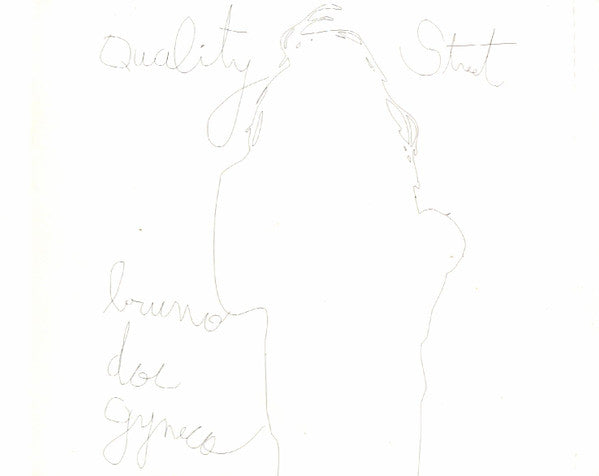 Quality Street
bruno
doc
gyneco